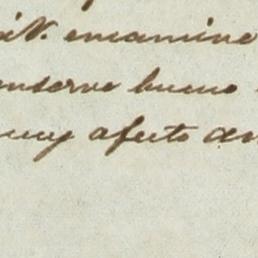 V. encamine
conserve bueno
muy afecto am